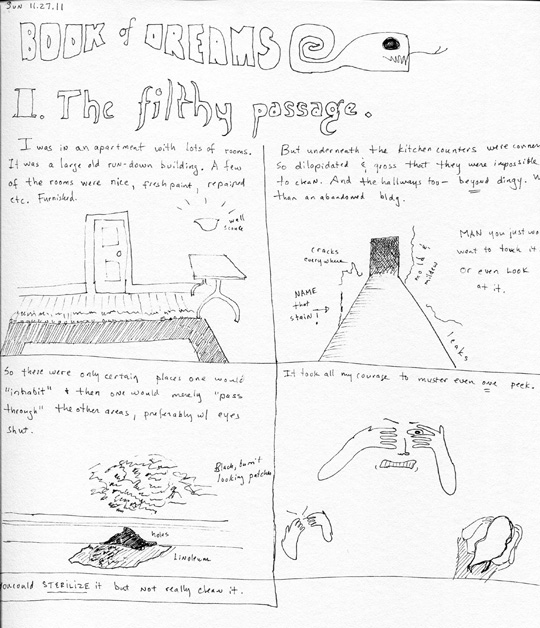 SUN 11.27.11
BOOK of DREAMS
II. The filthy passage.
I was in an apartment with lots of rooms.
It was a large old run-down building. A few
of the rooms were nice, fresh paint, repaired
etc. Furnished.
wall
sconce
But underneath the kitchen counters were corners
So dilopidated & gross that they were impossible
to clean. And the hallways too— beyond dingy. W
than an abandoned bldg.
cracks
everywhere
mold &
mildew
NAME
that
STAIN!
leaks
MAN you just wo
want to touch it
Or even Look
at it.
So there were only certain places one would
"inhabit" & then one would merely "pass
through" the other areas, preferably w/ eyes
shut.
Black, burn't
looking patches
holes
linoleum
you could STERILIZE it but not really clean it.
It took all my courage to muster even one peek.